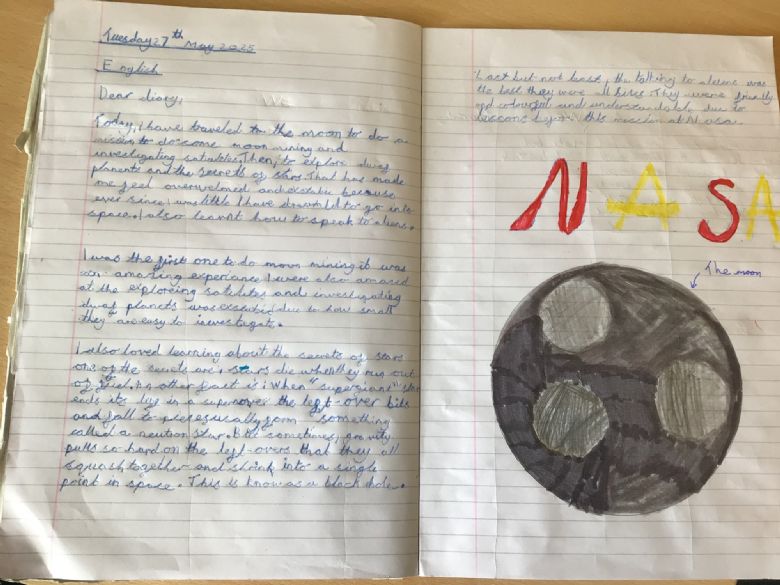 Tuesday 27th May 2025
English
Dear diary,
Today, I have traveled to the moon to do a
mission to do some moon mining and
investigating satiables. Then, to explore dwarf
planents and the secrets of stars. That has made
me feel overwelmed and because
ever since I was little I have to go into
space. I also learnt how to speak to aliens.
I was the first one to do moon mining it was
amazing experiance. I were also amazed
at the exploreing satiables and investigating
dwarf planets was due to how small
they are easy to investigate.
I also loved learning about the secrets of stars
one of the secrets are: stars die when they run out
of fuel. An other fact is: When "supergiant" star
ends its life in a supernover the left-over bits
and fall to pieces usually form something
called a neutron star. sometimes, gravity
pulls so hard on the left-overs that they all
squash together and shrink into a single
point in space. This is know as a black hole.
Last but not least, the talking to aliens was
the best they were all They were friendly
and colourful and understandable due to
lessons this mission at Nasa.
NASA
The moon